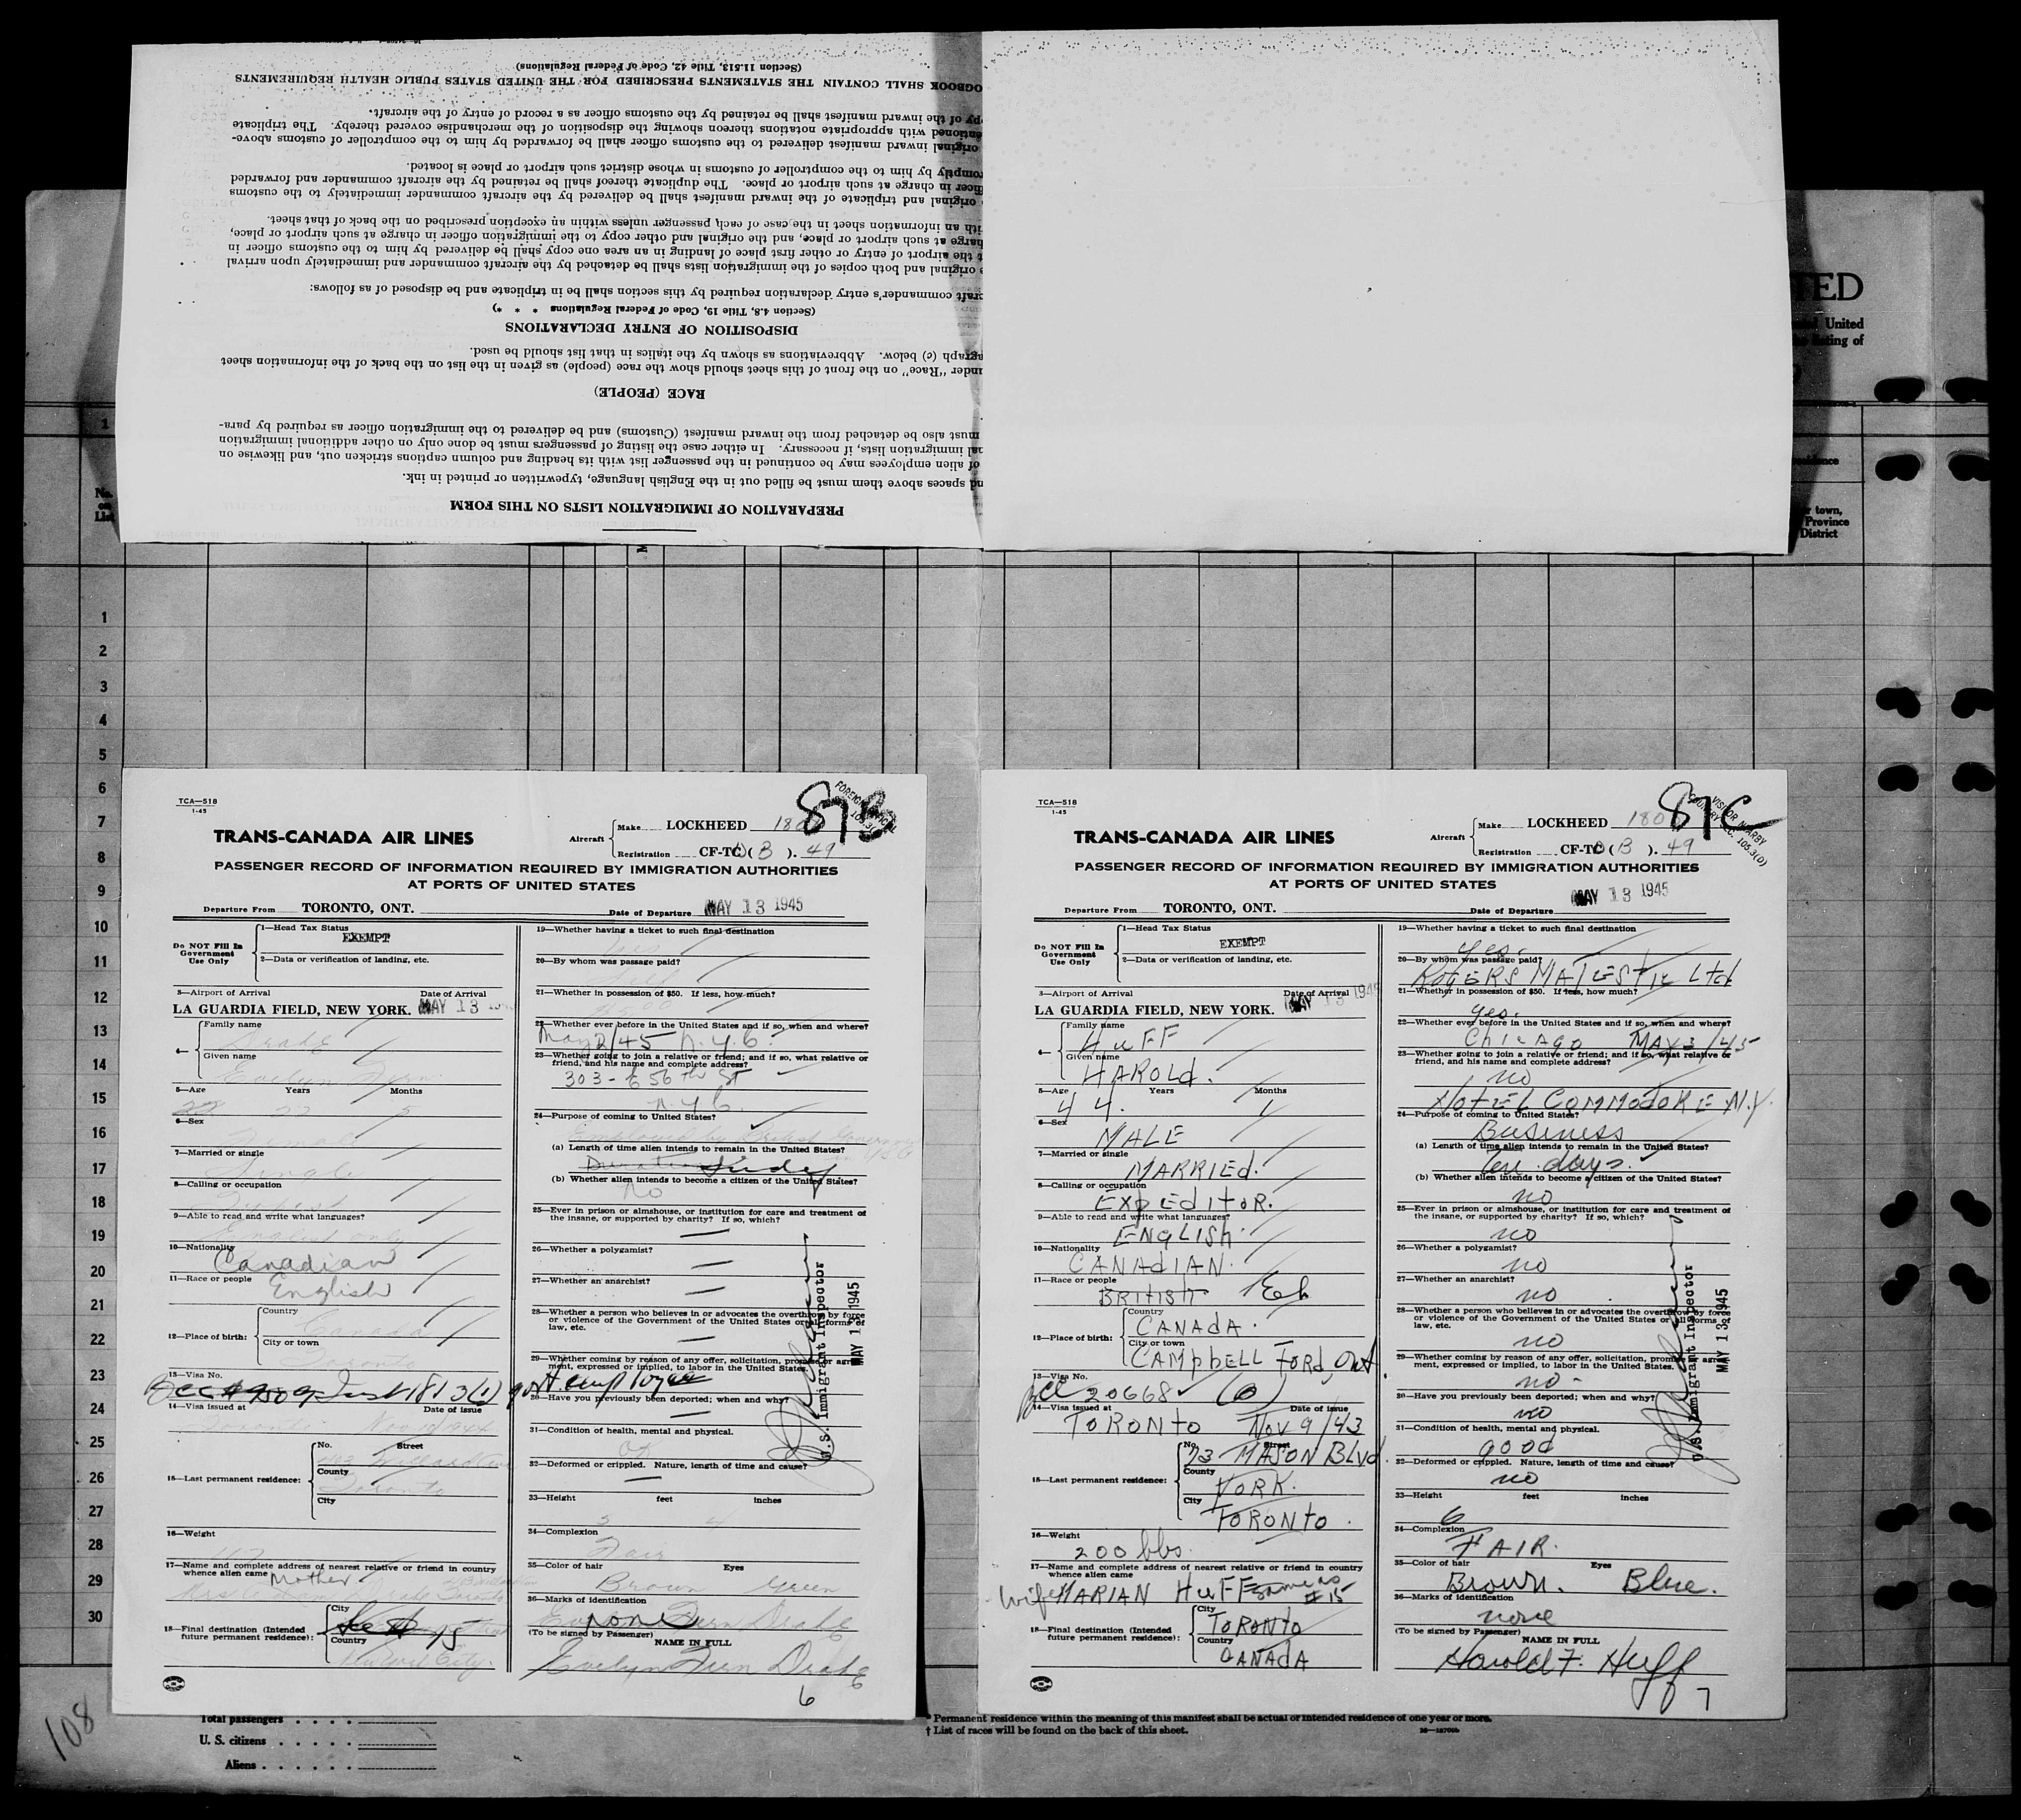 (Section 11.513, Title 42, Code of Federal Regulations)
OGBOOK SHALL CONTAIN THE STATEMENTS PRESCRIBED FOR THE UNITED STATES PUBLIC HEALTH REQUIREMENTS
py of the inward manifest shall be retained by the customs officer as a record of entry of the aircraft.
entioned with appropriate notations thereon showing the disposition of the merchandise covered thereby. The triplicate
original inward manifest delivered to the customs officer shall be forwarded by him to the comptroller of customs above-
romptly by him to the comptroller of customs in whose district such airport or place is located.
fficer in charge at such airport or place. The duplicate thereof shall be retained by the aircraft commander and forwarded
e original and triplicate of the inward manifest shall be delivered by the aircraft commander immediately to the customs
ith an information sheet in the case of each passenger unless within an exception prescribed on the back of that sheet.
harge at such airport or place, and the original and other copy to the immigration officer in charge at such airport or place,
t the airport of entry or other first place of landing in an area one copy shall be delivered by him to the customs officer in
e original and both copies of the immigration lists shall be detached by the aircraft commander and immediately upon arrival
craft commander's entry declaration required by this section shall be in triplicate and be disposed of as follows:
(Section 4.8, Title 19, Code of Federal Regulations * * *)
DISPOSITION OF ENTRY DECLARATIONS
agraph (c) below. Abbreviations as shown by the italics in that list should be used.
under "Race" on the front of this sheet should show the race (people) as given in the list on the back of the information sheet
RACE (PEOPLE)
must also be detached from the inward manifest (Customs) and be delivered to the immigration officer as required by para-
nal immigration lists, if necessary. In either case the listing of passengers must be done only on other additional immigration
of alien employees may be continued in the passenger list with its heading and column captions stricken out, and likewise on
nd spaces above them must be filled out in the English language, typewritten or printed in ink.
PREPARATION OF IMMIGRATION LISTS ON THIS FORM
TED
United
ting of
r town,
Province
District
1
No.
on
List
1
2
3
4
5
6
7
8
9
10
11
12
13
14
15
16
17
18
19
20
21
22
23
24
25
26
27
28
29
30
TCA—518
1-45
87B
TRANS-CANADA AIR LINES
Aircraft
Make LOCKHEED 180
Registration CF-TC (B). 49
PASSENGER RECORD OF INFORMATION REQUIRED BY IMMIGRATION AUTHORITIES
AT PORTS OF UNITED STATES
Departure From TORONTO, ONT. Date of Departure MAY 13 1945
Do NOT Fill In Government Use Only
1—Head Tax Status
EXEMPT
2—Data or verification of landing, etc.
3—Airport of Arrival Date of Arrival
LA GUARDIA FIELD, NEW YORK. MAY 13
4—
Family name
Drake
Given name
Evelyn Fern
5—Age Years Months
22 5
6—Sex
Female
7—Married or single
Single
8—Calling or occupation
9—Able to read and write what languages?
English only
10—Nationality
Canadian
11—Race or people
English
12—Place of birth:
Country
City or town
13—Visa No.
14—Visa issued at Date of issue
15—Last permanent residence:
No. Street
County
Toronto
City
16—Weight
17—Name and complete address of nearest relative or friend in country
whence alien came Mother
18—Final destination (Intended
future permanent residence):
City
Country
New York City.
19—Whether having a ticket to such final destination
Yes
20—By whom was passage paid?
21—Whether in possession of $50. If less, how much?
22—Whether ever before in the United States and if so, when and where?
May 2/45 N.Y.C.
23—Whether going to join a relative or friend; and if so, what relative or
friend, and his name and complete address?
303 - E 56th St
N.Y.C.
24—Purpose of coming to United States?
(a) Length of time alien intends to remain in the United States?
(b) Whether alien intends to become a citizen of the United States?
No
25—Ever in prison or almshouse, or institution for care and treatment of
the insane, or supported by charity? If so, which?
—
26—Whether a polygamist?
—
27—Whether an anarchist?
—
28—Whether a person who believes in or advocates the overthrow by force
or violence of the Government of the United States or all forms of
law, etc.
—
29—Whether coming by reason of any offer, solicitation, promise or agree-
ment, expressed or implied, to labor in the United States.
30—Have you previously been deported; when and why?
—
31—Condition of health, mental and physical.
OK
32—Deformed or crippled. Nature, length of time and cause?
—
33—Height feet inches
5 4
34—Complexion
Fair
35—Color of hair Eyes
Brown Green
36—Marks of identification
none
(To be signed by Passenger)
NAME IN FULL
Evelyn Fern Drake
6
U.S. Immigrant Inspector
MAY 13 1945
TCA—518
1-45
87C
VISITOR NEARBY
COUNTRY SEC. 105.3(D)
TRANS-CANADA AIR LINES
Aircraft
Make LOCKHEED 180
Registration CF-TC (B). 49
PASSENGER RECORD OF INFORMATION REQUIRED BY IMMIGRATION AUTHORITIES
AT PORTS OF UNITED STATES
Departure From TORONTO, ONT. Date of Departure MAY 13 1945
Do NOT Fill In Government Use Only
1—Head Tax Status
EXEMPT
2—Data or verification of landing, etc.
3—Airport of Arrival Date of Arrival
LA GUARDIA FIELD, NEW YORK. MAY 13 1945
4—
Family name
HUFF
Given name
HAROLd.
5—Age Years Months
44. 1
6—Sex
MALE
7—Married or single
MARRIEd.
8—Calling or occupation
EXPEDITOR.
9—Able to read and write what languages?
ENGLISH.
10—Nationality
CANADIAN.
11—Race or people
BRITISH
12—Place of birth:
Country
CANADA.
City or town
CAMPBELLFORD, Ont.
13—Visa No.
20668 (6)
14—Visa issued at Date of issue
TORONTO Nov 9/43
15—Last permanent residence:
No. Street
73 MASON BLVd.
County
YORK.
City
TORONTO.
16—Weight
200 lbs.
17—Name and complete address of nearest relative or friend in country
whence alien came
wife MARIAN HUFF same as #15
18—Final destination (Intended
future permanent residence):
City
TORONTO
Country
CANADA
19—Whether having a ticket to such final destination
yes.
20—By whom was passage paid?
ROGERS MAJESTIC Ltd
21—Whether in possession of $50. If less, how much?
yes.
22—Whether ever before in the United States and if so, when and where?
ChicAgo MAY 3/45
23—Whether going to join a relative or friend; and if so, what relative or
friend, and his name and complete address?
no
HOTEL COMMODORE N.Y.
24—Purpose of coming to United States?
Business
(a) Length of time alien intends to remain in the United States?
ten days.
(b) Whether alien intends to become a citizen of the United States?
no
25—Ever in prison or almshouse, or institution for care and treatment of
the insane, or supported by charity? If so, which?
no
26—Whether a polygamist?
no
27—Whether an anarchist?
no
28—Whether a person who believes in or advocates the overthrow by force
or violence of the Government of the United States or all forms of
law, etc.
no
29—Whether coming by reason of any offer, solicitation, promise or agree-
ment, expressed or implied, to labor in the United States.
no-
30—Have you previously been deported; when and why?
no
31—Condition of health, mental and physical.
good
32—Deformed or crippled. Nature, length of time and cause?
no
33—Height feet inches
6
34—Complexion
FAIR.
35—Color of hair Eyes
Brown. Blue.
36—Marks of identification
none
(To be signed by Passenger)
NAME IN FULL
Harold F. Huff
7
U.S. Immigrant Inspector
MAY 13 1945
108
Total passengers
U. S. citizens
Aliens
* Permanent residence within the meaning of this manifest shall be actual or intended residence of one year or more.
† List of races will be found on the back of this sheet.